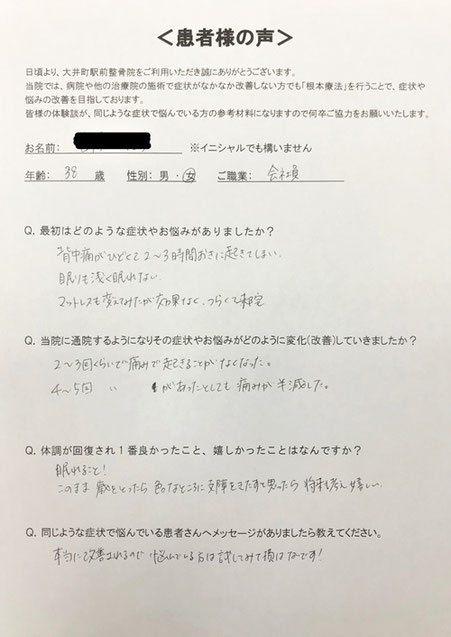 ＜患者様の声＞
日頃より、大井町駅前整骨院をご利用いただき誠にありがとうございます。
当院では、病院や他の治療院の施術で症状がなかなか改善しない方でも「根本療法」を行うことで、症状や
悩みの改善を目指しております。
皆様の体験談が、同じような症状で悩んでいる方の参考材料になりますので何卒ご協力をお願いいたします。
お名前： ※イニシャルでも構いません
年齢： 38 歳 性別：男・女 ご職業： 会社員
Q. 最初はどのような症状やお悩みがありましたか？
背中痛がひどくて2～3時間おきに起きてしまい、
眠りも浅く眠れない。
マットレスも変えてみたが効果なく、つらくて来院
Q. 当院に通院するようになりその症状やお悩みがどのように変化(改善)していきましたか？
2～3回くらいで痛みで起きることがなくなった。
4～5回 〃 があったとしても 痛みが半減した。
Q. 体調が回復され１番良かったこと、嬉しかったことはなんですか？
眠れること！
このまま 歳をとったら 色々なところに支障をきたすと思ったら 将来も考え嬉しい
Q. 同じような症状で悩んでいる患者さんへメッセージがありましたら教えてください。
本当に改善されるので 悩んでいる方は試してみて損はないです！